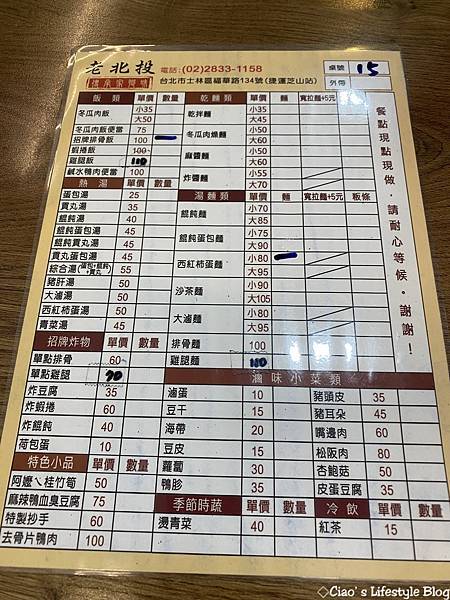 老北投
禮承家買味
電話：(02)2833-1158
台北市士林區福華路134號(捷運芝山站)
桌號 15
外帶
飯類 單價 數量
冬瓜肉飯 小35
大50
冬瓜肉飯便當 75
招牌排骨飯 100
蝦捲飯 100
雞腿飯 110
鹹水鴨肉便當 100
熱湯 單價 數量
蛋包湯 25
貢丸湯 35
餛飩湯 40
餛飩蛋包湯 45
餛飩貢丸湯 45
貢丸蛋包湯 45
綜合湯(蛋包+餛飩+貢丸) 55
豬肝湯 50
大滷湯 50
西紅柿蛋湯 50
青菜湯 45
招牌炸物 單價 數量
單點排骨 60
單點雞腿 70
炸豆腐 35
炸蝦捲 60
炸餛飩 40
荷包蛋 10
特色小品 單價 數量
阿嬤ㄟ桂竹筍 50
麻辣鴨血臭豆腐 75
特製抄手 60
去骨片鴨肉 100
乾麵類 單價 麵 寬拉麵+5元
乾拌麵 小35
大45
冬瓜肉燥麵 小50
大60
麻醬麵 小50
大60
炸醬麵 小55
大70
湯麵類 單價 麵 寬拉麵+5元 粄條
餛飩麵 小70
大85
餛飩蛋包麵 小75
大90
西紅柿蛋麵 小80
大95
沙茶麵 小90
大105
大滷麵 小80
大95
排骨麵 100
雞腿麵 110
滷味小菜類
滷蛋 10
豆干 15
海帶 20
豆皮 15
蘿蔔 30
鴨胗 35
豬頭皮 35
豬耳朵 45
嘴邊肉 60
松阪肉 80
杏鮑菇 50
皮蛋豆腐 35
季節時蔬 單價 數量
燙青菜 40
冷飲 單價 數量
紅茶 15
餐點現點現做，請耐心等候，謝謝！
◇Ciao's Lifestyle Blog